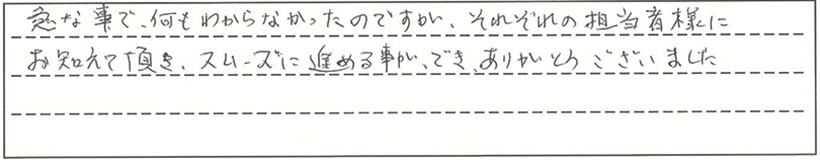 急な事で、何もわからなかったのですが、それぞれの担当者様に
お知えて頂き、スムーズに進める事が、でき、ありがとうございました